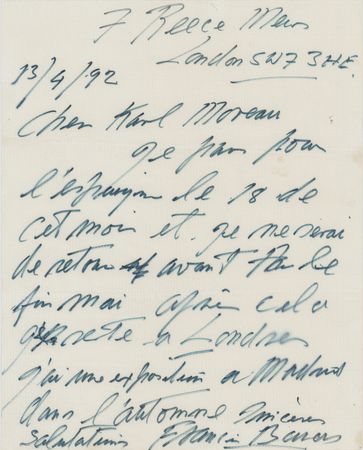 7 Reece Mews
London SW7 3HE
13/4/92
Cher Karl Moreau
Je pars pour
l'espagne le 18 de
cet moi et je ne serai
de retour avant la
fin mai après cela
je reste a Londres
j'ai une exposition a Madrid
dans l'automne Sincères
salutations Francis Bacon